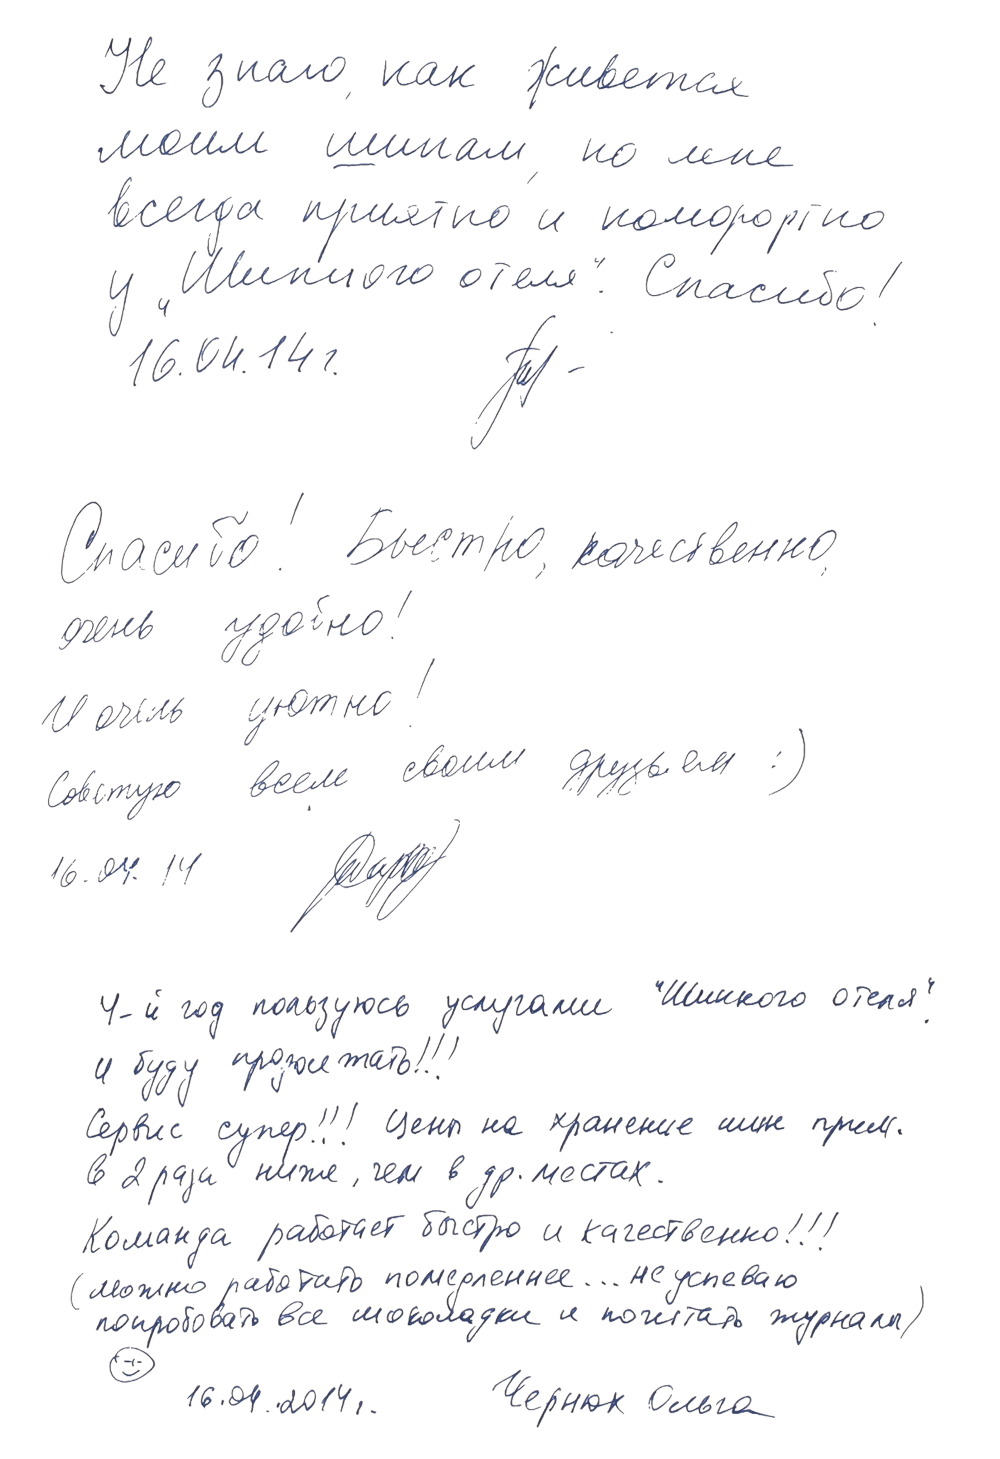 Не знаю, как живется
моим шинам, но мне
всегда приятно и комфортно
у „Шинного отеля“. Спасибо!
16.04.14 г.
Спасибо! Быстро, качественно,
очень удобно!
И очень уютно!
Советую всем своим друзьям :)
16.04.14
4-й год пользуюсь услугами "Шинного отеля".
и буду продолжать!!!
Сервис супер!!! Цены на хранение шин прим.
в 2 раза ниже, чем в др. местах.
Команда работает быстро и качественно!!!
(можно работать помедленнее... не успеваю
попробовать все шоколадки и почитать журналы)
16.04.2014 г. Чернюк Ольга